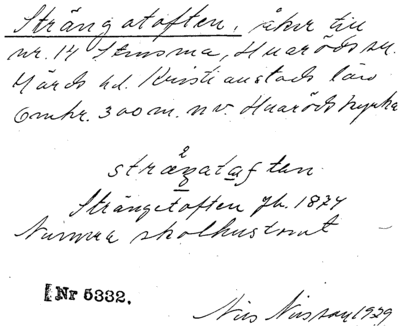 Strängatoften, åker till
nr. 14 Strusma, Huaröds sn.
Gärds hd. Kristianstads län
Omkr. 300 m. n v. Huaröds kyrka
strängatoften
Strängetoften Jb. 1874
Nuvura skolhustomt
Nr 5332.
Nils Nilsson 1929